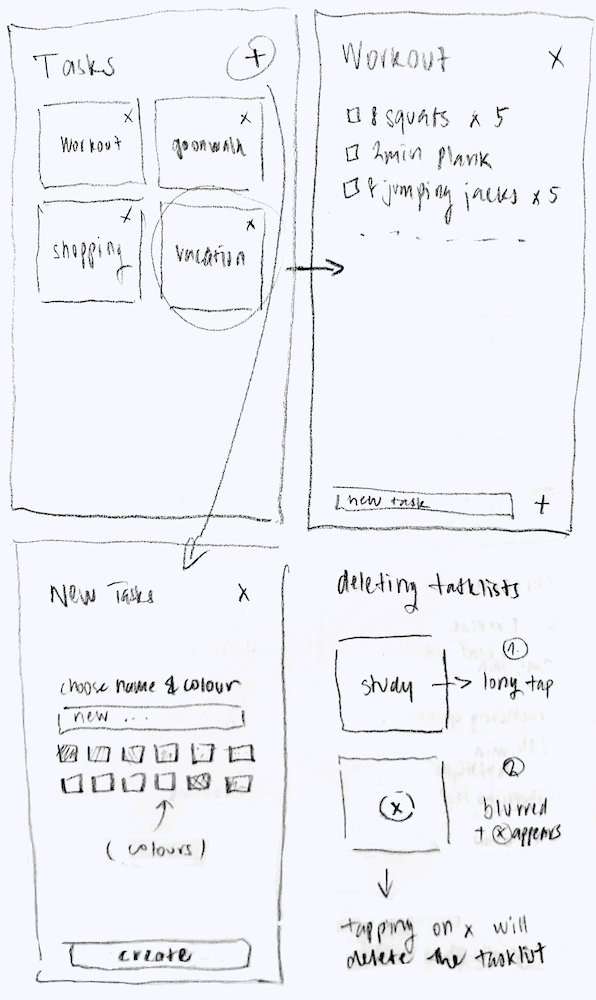 Tasks +
x x
Workout goonwalk
x x
shopping vacation
Workout x
8 squats x 5
2min plank
8 jumping jacks x 5
new task +
New Tasks x
choose name & colour
new ...
(colours)
create
deleting tasklists
1.
study
long tap
2.
x
blurred
+ x appears
tapping on x will
delete the tasklist